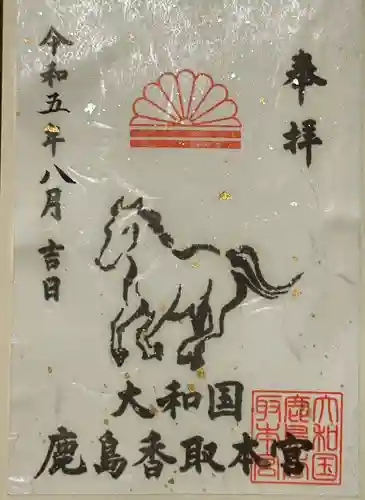 奉拝
令和五年八月吉日
大和国
鹿島香取本宮
大和国
鹿島香
取本宮